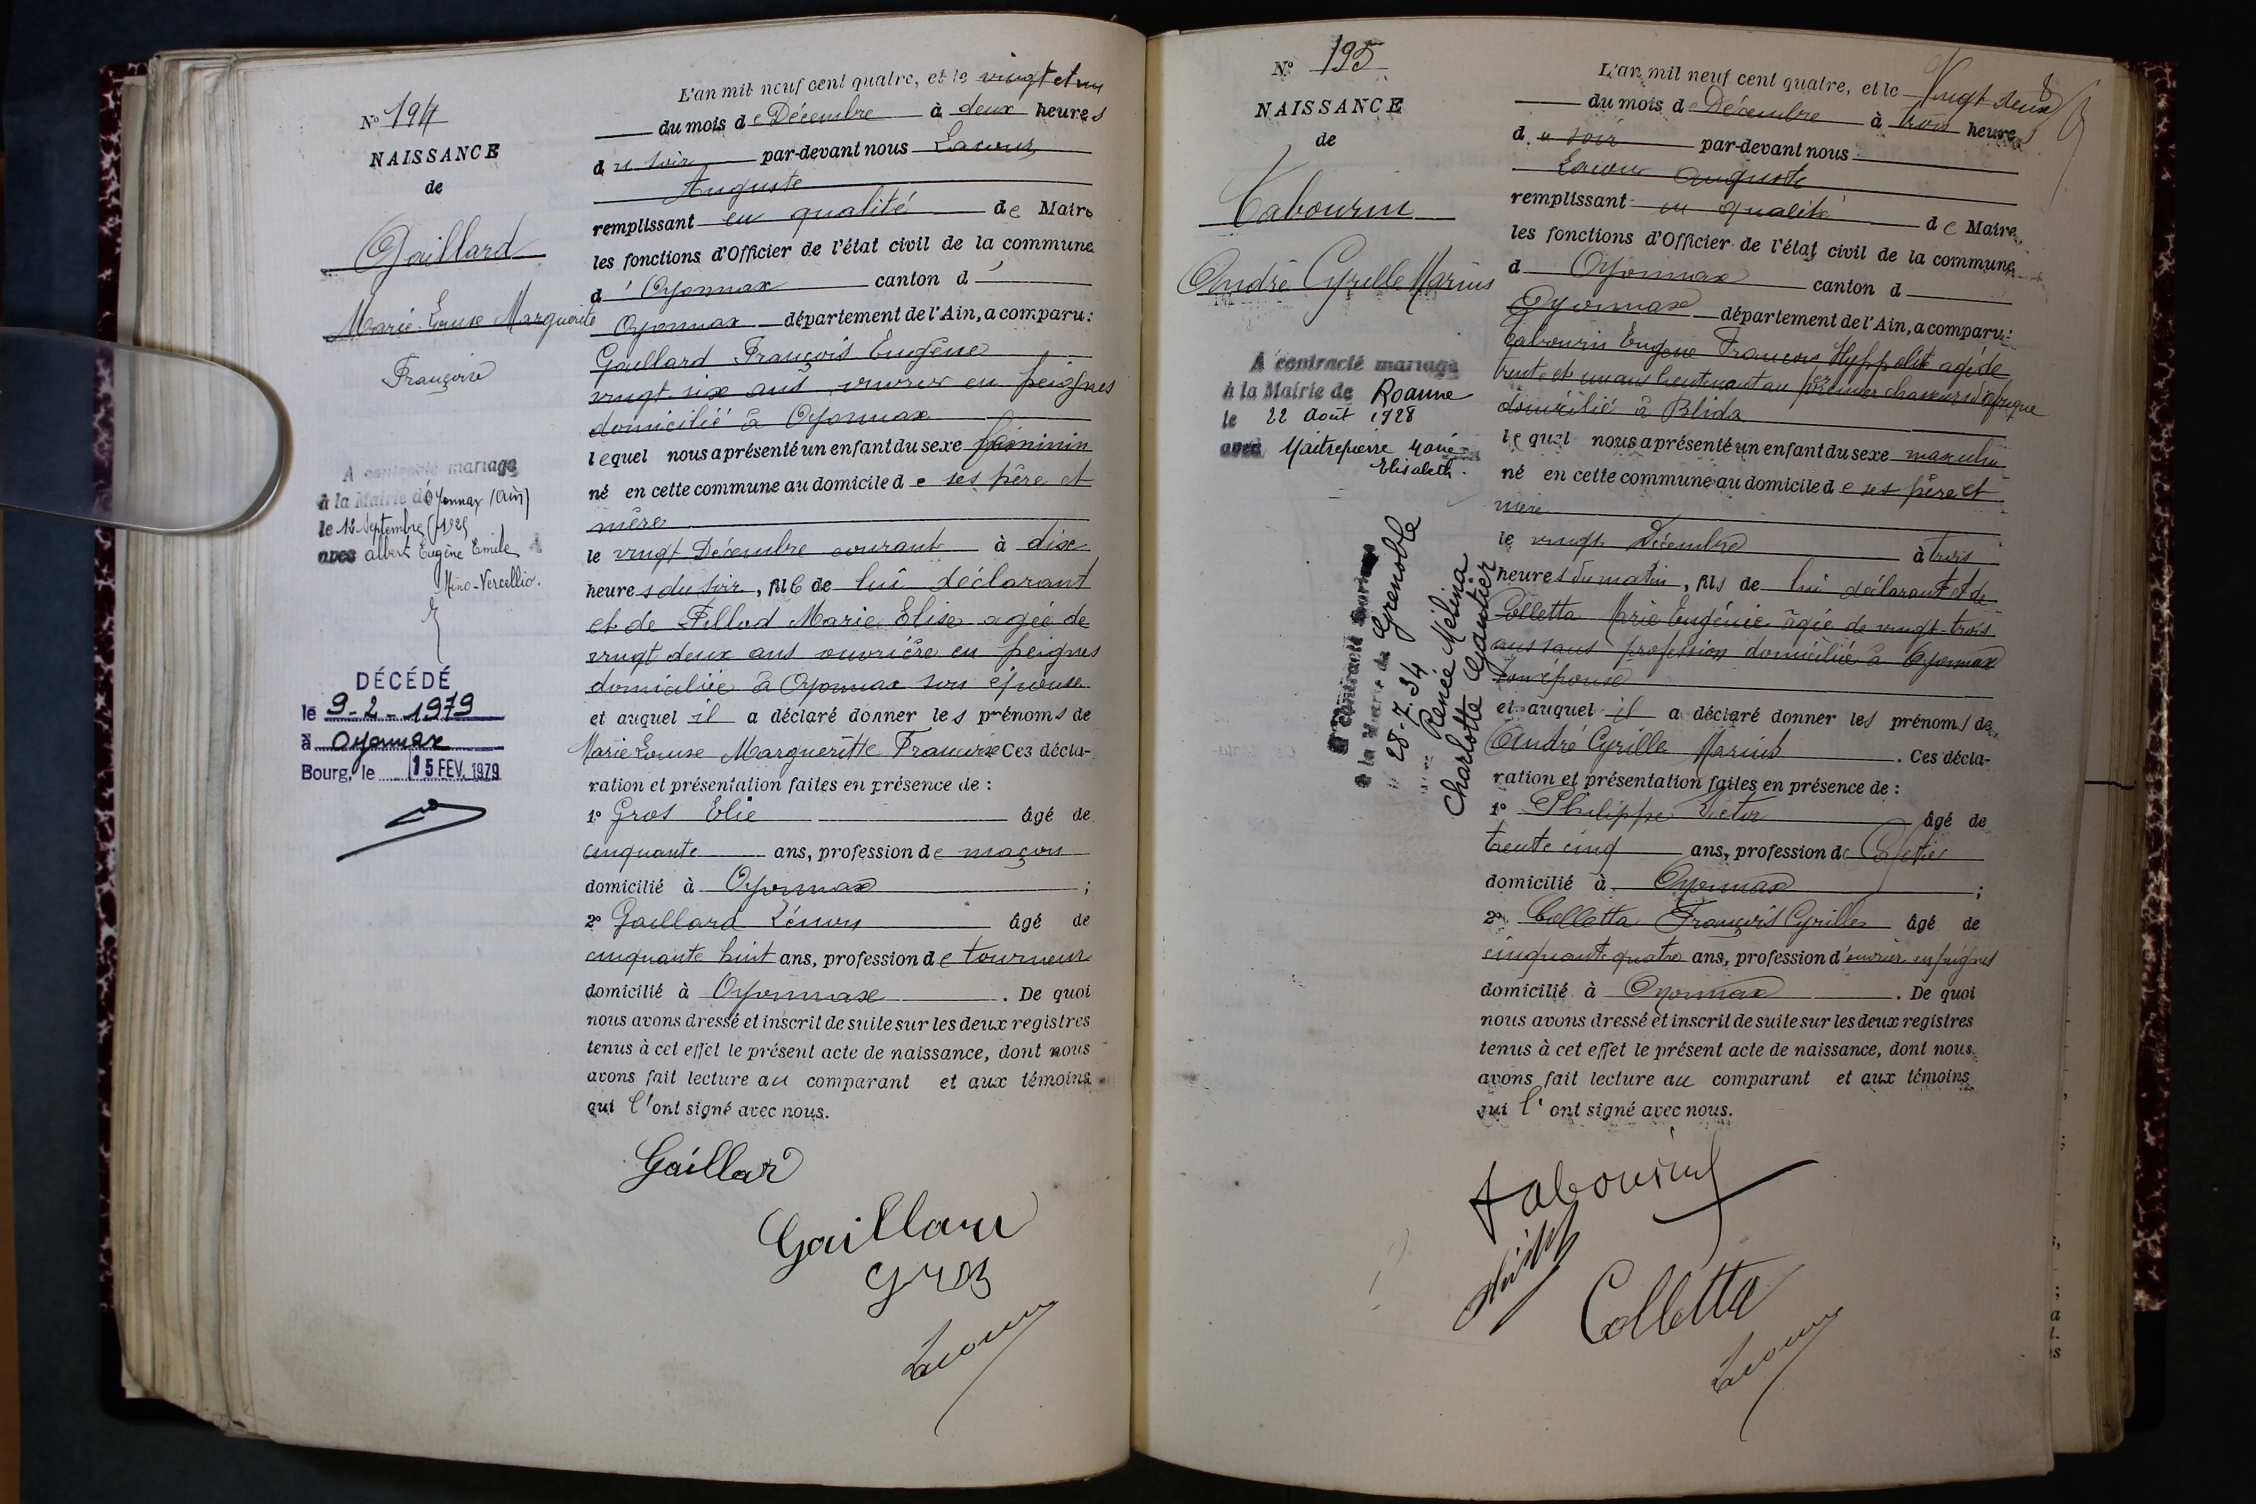 N° 194
NAISSANCE
de
Gaillard
Marie Louise Marguerite
Françoise
A contracté mariage
à la Mairie d'Oyonnax (Ain)
le 12 Septembre 1925
avec Albert Eugène Emile
Mino-Vercellio.
DÉCÉDÉ
le 9-2-1979
à Oyonnax
Bourg, le 15 FEV. 1979
L'an mil neuf cent quatre, et le vingt et un
du mois de Décembre à deux heures
du soir par-devant nous Lacour
Auguste
remplissant en qualité de Maire
les fonctions d'Officier de l'état civil de la commune
d'Oyonnax canton d'
Oyonnax département de l'Ain, a comparu:
Gaillard François Eugène
vingt six ans ouvrier en peignes
domicilié à Oyonnax
lequel nous a présenté un enfant du sexe féminin
né en cette commune au domicile de ses père et
mère
le vingt Décembre courant à dix
heures du soir, fille de lui déclarant
et de Fillod Marie Elise agée de
vingt deux ans ouvrière en peignes
domiciliée à Oyonnax son épouse
et auquel il a déclaré donner les prénoms de
Marie Louise Marguerite Françoise Ces décla-
ration et présentation faites en présence de :
1° Gros Elie âgé de
cinquante ans, profession de maçon
domicilié à Oyonnax ;
2° Gaillard Zénon âgé de
cinquante huit ans, profession de tourneur
domicilié à Oyonnax . De quoi
nous avons dressé et inscrit de suite sur les deux registres
tenus à cet effet le présent acte de naissance, dont nous
avons fait lecture au comparant et aux témoins
qui l'ont signé avec nous.
Gaillard
Gaillard
Gros
Lacour
N° 195
NAISSANCE
de
Tabourin
André Cyrille Marius
A contracté mariage
à la Mairie de Roanne
le 22 Août 1928
avec Maitrepierre
Elisabeth.
A contracté mariage
à la Mairie de Grenoble
le 28-7-34
avec Renée Mélina
Charlotte Gautier
L'an mil neuf cent quatre, et le Vingt deux
du mois de Décembre à trois heures
du soir par-devant nous
Lacour Auguste
remplissant en qualité de Maire
les fonctions d'Officier de l'état civil de la commune
d Oyonnax canton d
Oyonnax département de l'Ain, a comparu:
Tabourin Eugène François Hyppolite agé de
trente et un ans lieutenant au premier chasseurs d'afrique
domicilié à Blida
lequel nous a présenté un enfant du sexe masculin
né en cette commune au domicile de ses père et
mère
le vingt Décembre à trois
heures du matin, fils de lui déclarant et de
Colletta Marie Eugénie âgée de vingt-trois
ans sans profession domiciliée à Oyonnax
son épouse
et auquel il a déclaré donner les prénoms de
André Cyrille Marius . Ces décla-
ration et présentation faites en présence de :
1° Philippe Victor âgé de
trente cinq ans, profession de Cafetier
domicilié à Oyonnax ;
2° Colletta François Cyrille âgé de
cinquante quatre ans, profession d'ouvrier en peignes
domicilié à Oyonnax . De quoi
nous avons dressé et inscrit de suite sur les deux registres
tenus à cet effet le présent acte de naissance, dont nous
avons fait lecture au comparant et aux témoins
qui l'ont signé avec nous.
Tabourin
Colletta
Lacour